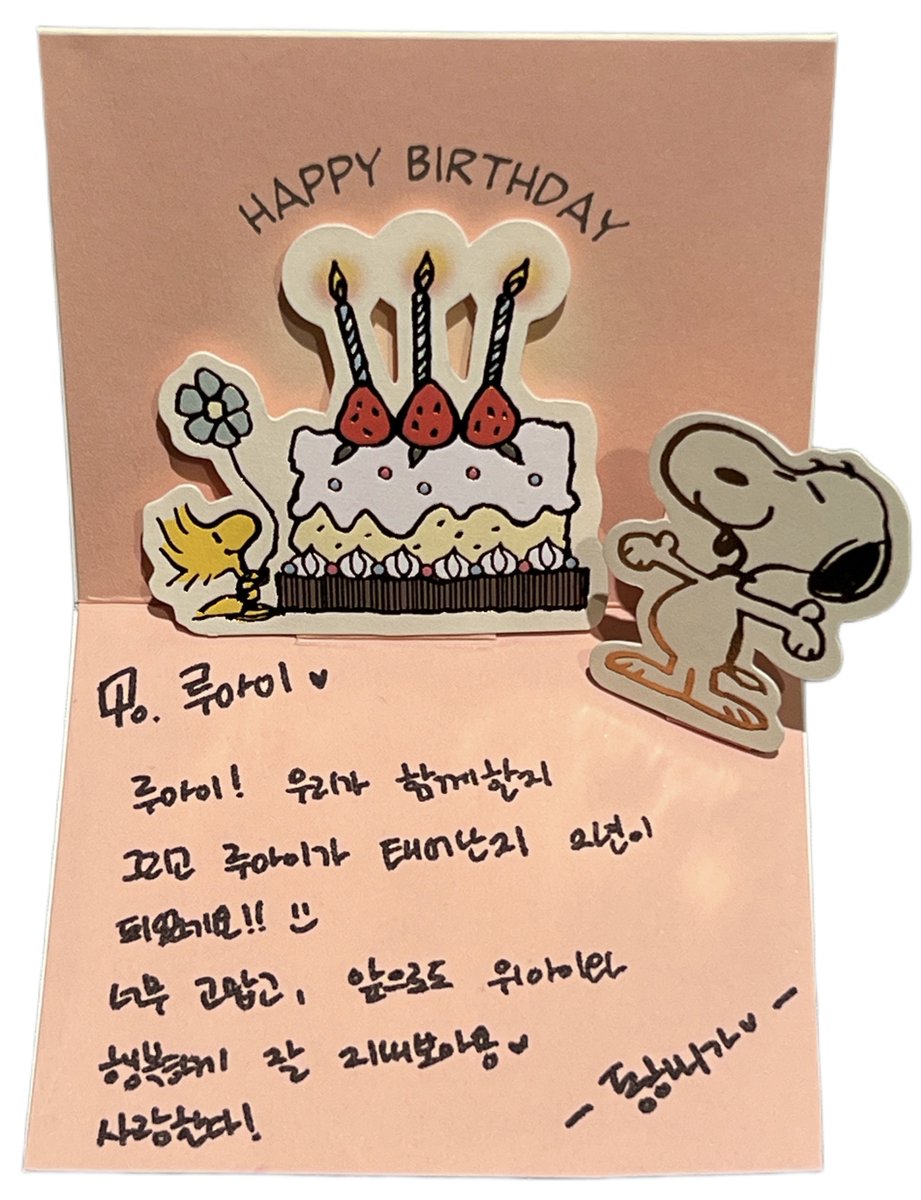 HAPPY BIRTHDAY
루아이♥
루아이! 우리가 함께한지
그리고 루아이가 태어난지 2년이
되었기요!! :)
너무 고맙고, 앞으로도 위아이와
행복하게 잘 지내보아용♥
사랑한다!